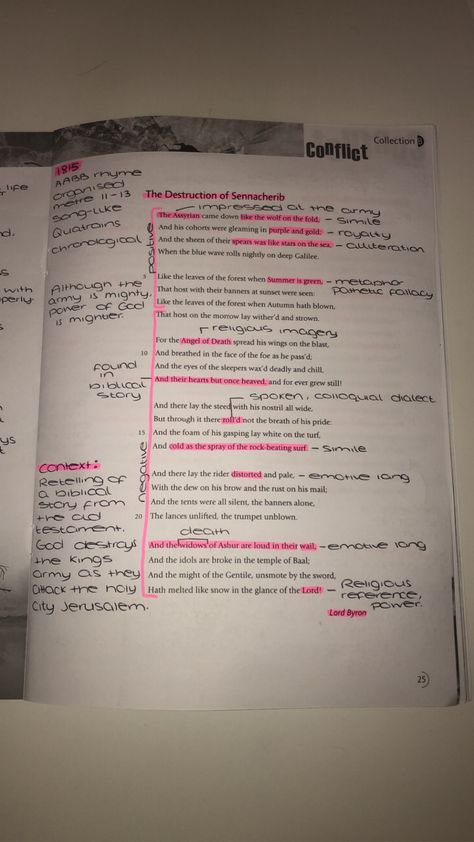 Collection
Conflict
life
1815
AABB rhyme
organised
metre 11-13
song-like
Quatrains
chronological
The Destruction of Sennacherib
impressed at the army
The Assyrian came down like the wolf on the fold, - simile
And his cohorts were gleaming in purple and gold; - royalty
And the sheen of their spears was like stars on the sea, - alliteration
When the blue wave rolls nightly on deep Galilee.
positive
5 Like the leaves of the forest when Summer is green, - metaphor
Pathetic fallacy
That host with their banners at sunset were seen:
Like the leaves of the forest when Autumn hath blown,
That host on the morrow lay wither'd and strown.
Although the
army is mighty,
power of God
is mightier.
with
religious imagery
For the Angel of Death spread his wings on the blast,
10 And breathed in the face of the foe as he pass'd;
And the eyes of the sleepers wax'd deadly and chill,
And their hearts but once heaved, and for ever grew still!
found
in
biblical
story
spoken, colloquial dialect
And there lay the steed with his nostril all wide,
But through it there roll'd not the breath of his pride:
15 And the foam of his gasping lay white on the turf,
And cold as the spray of the rock-beating surf. - simile
negative
And there lay the rider distorted and pale, - emotive lang
With the dew on his brow and the rust on his mail;
And the tents were all silent, the banners alone,
20 The lances unlifted, the trumpet unblown.
death
And the widows of Ashur are loud in their wail, - emotive lang
And the idols are broke in the temple of Baal;
And the might of the Gentile, unsmote by the sword,
Hath melted like snow in the glance of the Lord! - Religious
reference,
power.
Lord Byron
Context:
Retelling of
a biblical
story from
the old
testament.
God destroys
the kings
army as they
attack the holy
city Jerusalem.
25